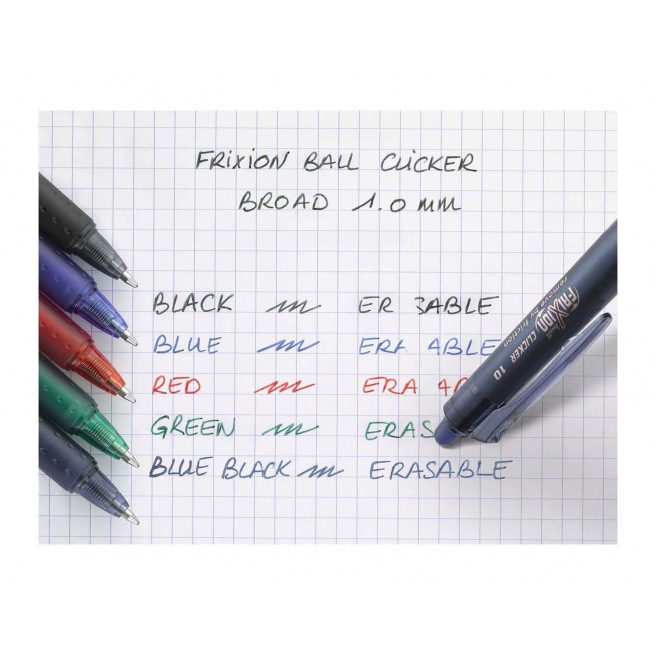 FRIXION BALL CLICKER
BROAD 1.0 mm
BLACK ER ABLE
BLUE ERA ABLE
RED ERA
GREEN ERAS
BLUE BLACK ERASABLE
FRIXION ball CLICKER 10
remove by friction